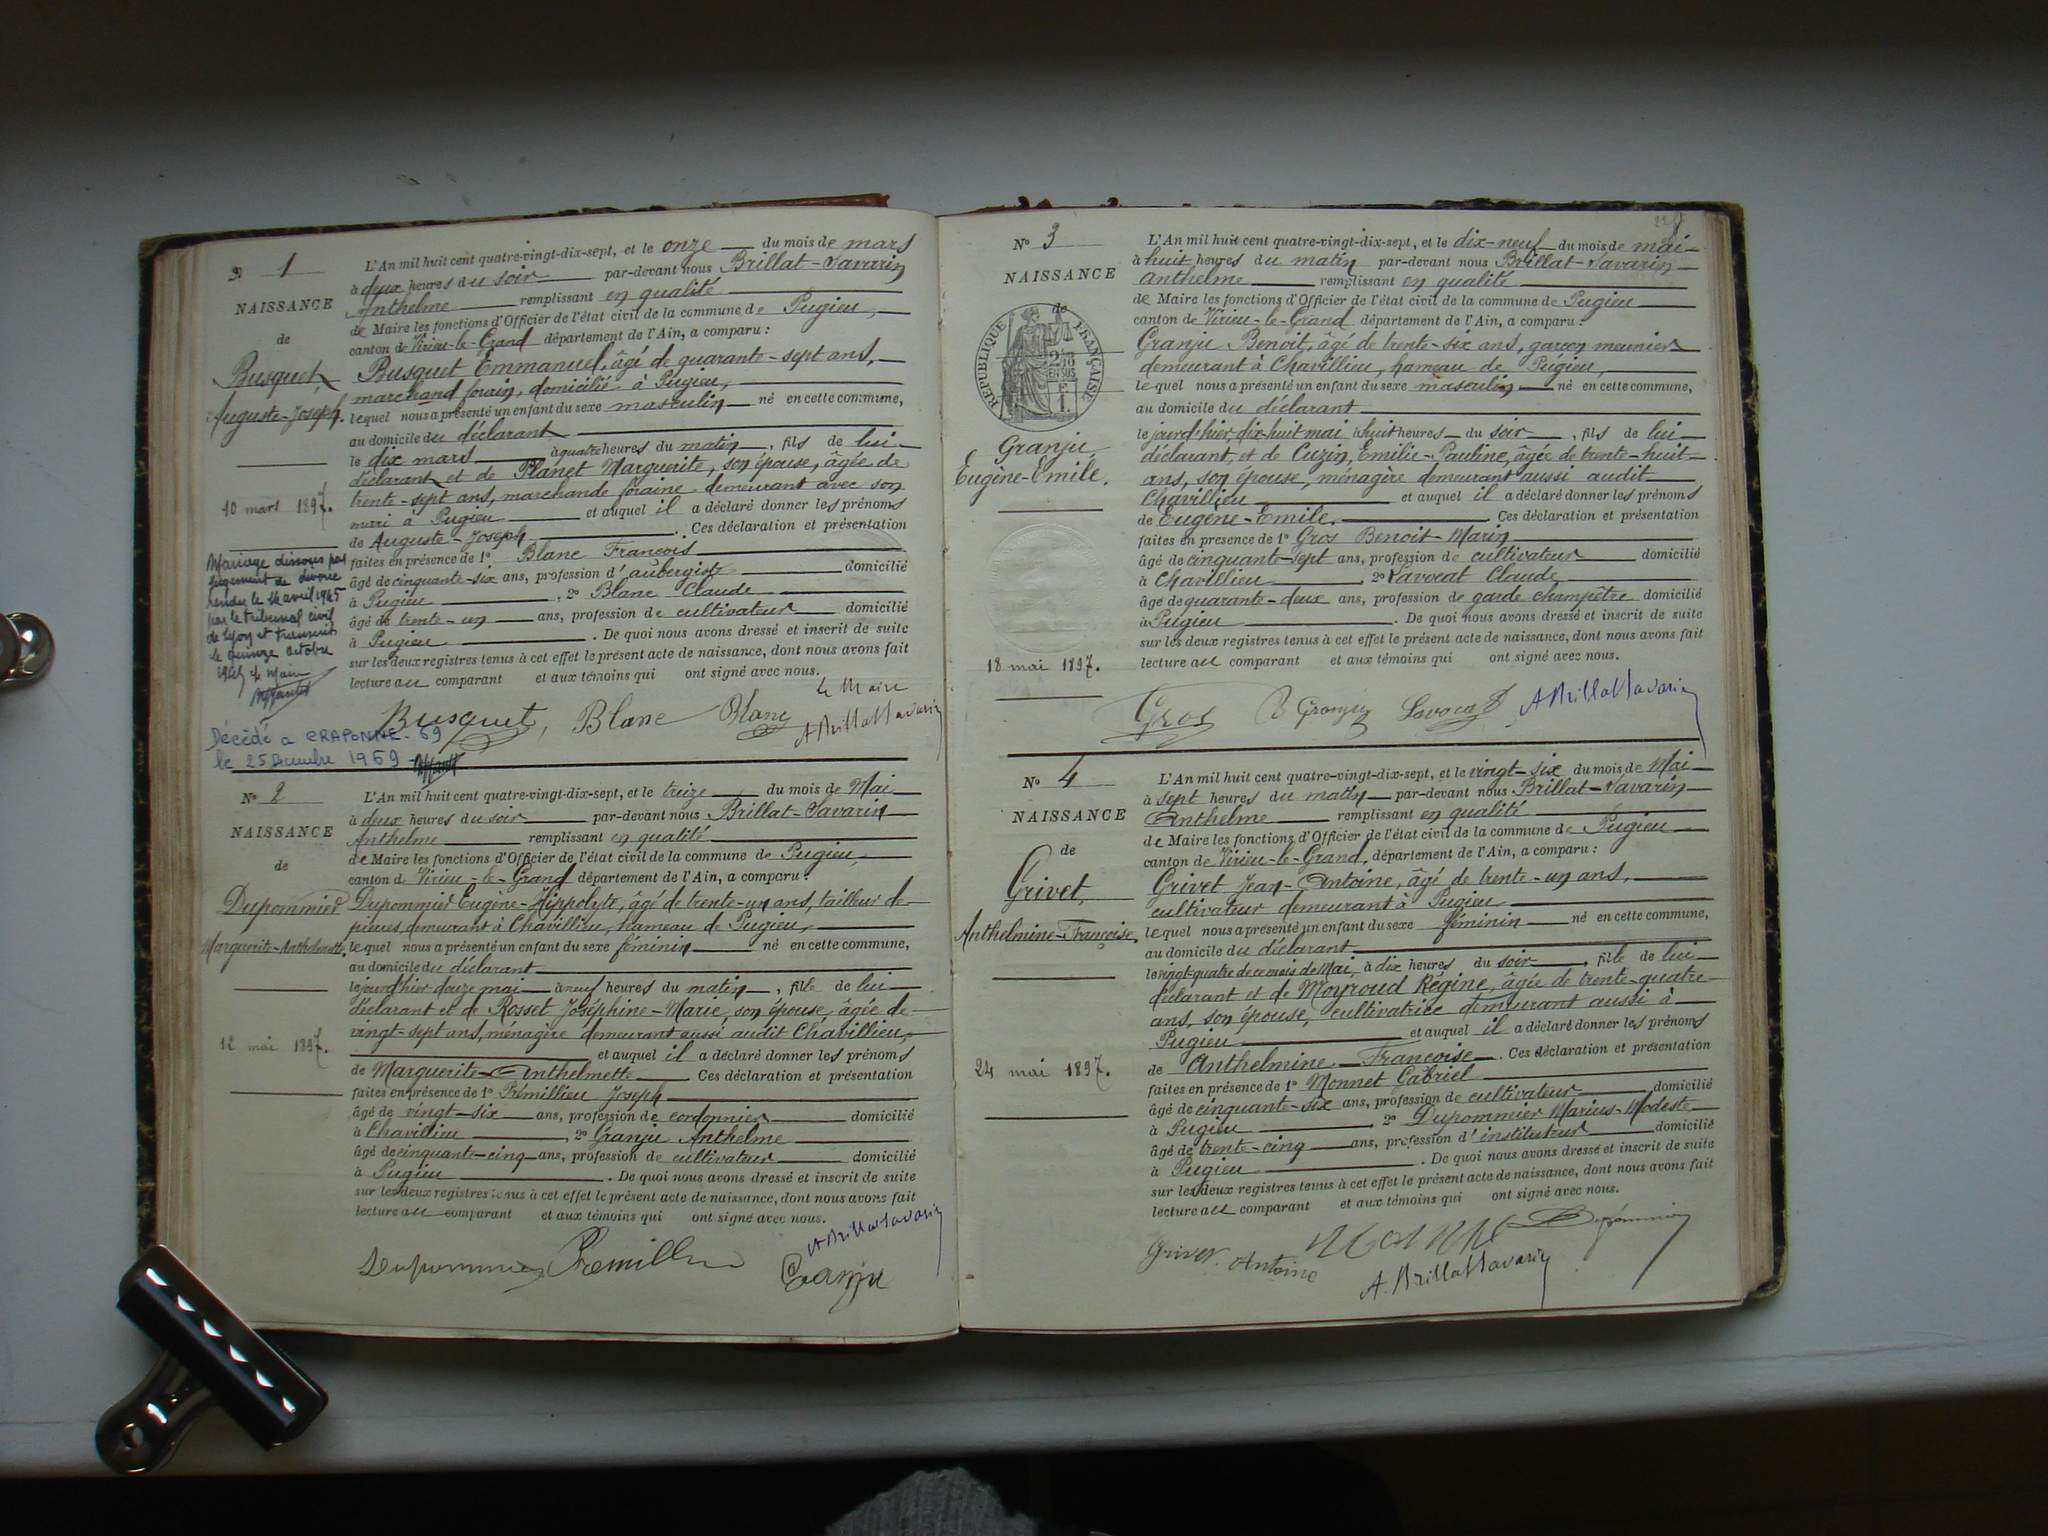 No 1
NAISSANCE
de
Busquet,
Auguste-Joseph.
10 mars 1897.
Mariage dissous par
jugement de divorce
rendu le 14 avril 1945
par le tribunal civil
de Lyon et transcrit
le quinze octobre
1945 le Maire
Décédé a CRAPONNE - 69
le 25 Décembre 1969
L'An mil huit cent quatre-vingt-dix-sept, et le onze du mois de mars
à deux heures du soir par-devant nous Brillat-Savarin
Anthelme remplissant en qualité
de Maire les fonctions d'Officier de l'état civil de la commune de Pugieu,
canton de Virieu-le-Grand département de l'Ain, a comparu :
Busquet Emmanuel, âgé de quarante-sept ans,
marchand forain, domicilié à Pugieu,
lequel nous a présenté un enfant du sexe masculin né en cette commune,
au domicile du déclarant
le dix mars à quatre heures du matin, fils de lui
déclarant et de Planet Marguerite, son épouse, âgée de
trente-sept ans, marchande foraine demeurant avec son
mari à Pugieu et auquel il a déclaré donner les prénoms
de Auguste-Joseph. Ces déclaration et présentation
faites en présence de 1º Blanc François
âgé de cinquante-six ans, profession d'aubergiste domicilié
à Pugieu, 2º Blanc Claude
âgé de trente-un ans, profession de cultivateur domicilié
à Pugieu. De quoi nous avons dressé et inscrit de suite
sur les deux registres tenus à cet effet le présent acte de naissance, dont nous avons fait
lecture au comparant et aux témoins qui ont signé avec nous.
Le Maire
Busquet, Blanc Blanc A Brillat Savarin
No 2
NAISSANCE
de
Dupommier
Marguerite-Anthelmette.
12 mai 1897.
L'An mil huit cent quatre-vingt-dix-sept, et le treize du mois de Mai
à deux heures du soir par-devant nous Brillat-Savarin
Anthelme remplissant en qualité
de Maire les fonctions d'Officier de l'état civil de la commune de Pugieu,
canton de Virieu-le-Grand département de l'Ain, a comparu :
Dupommier Eugène-Hippolyte, âgé de trente-un ans, tailleur de
pierres, demeurant à Chavillieu, hameau de Pugieu,
lequel nous a présenté un enfant du sexe féminin né en cette commune,
au domicile du déclarant
le jourd'hier douze mai à neuf heures du matin, fille de lui
déclarant et de Rosset Joséphine-Marie, son épouse âgée de
vingt-sept ans, ménagère demeurant aussi audit Chavillieu,
et auquel il a déclaré donner les prénoms
de Marguerite-Anthelmette Ces déclaration et présentation
faites en présence de 1º Prémillieu Joseph
âgé de vingt-six ans, profession de cordonnier domicilié
à Chavillieu, 2º Granju Anthelme
âgé de cinquante-cinq ans, profession de cultivateur domicilié
à Pugieu. De quoi nous avons dressé et inscrit de suite
sur les deux registres tenus à cet effet le présent acte de naissance, dont nous avons fait
lecture au comparant et aux témoins qui ont signé avec nous.
A Brillat Savarin
Dupommier Granju
No 3
NAISSANCE
de
RÉPUBLIQUE FRANÇAISE
2/10
EN SUS
1 F.
Granju
Eugène-Emile.
18 mai 1897.
L'An mil huit cent quatre-vingt-dix-sept, et le dix-neuf du mois de mai
à huit heures du matin par-devant nous Brillat-Savarin
Anthelme remplissant en qualité
de Maire les fonctions d'Officier de l'état civil de la commune de Pugieu
canton de Virieu-le-Grand département de l'Ain, a comparu :
Granju Benoit, âgé de trente-six ans, garçon meunier
demeurant à Chavillieu, hameau de Pugieu,
lequel nous a présenté un enfant du sexe masculin né en cette commune,
au domicile du déclarant
le jourd'hier, dix-huit mai à huit heures du soir, fils de lui
déclarant, et de Cuzin, Emilie-Pauline, âgée de trente-huit
ans, son épouse, ménagère demeurant aussi audit
Chavillieu et auquel il a déclaré donner les prénoms
de Eugène-Emile. Ces déclaration et présentation
faites en présence de 1º Gros Benoit-Marin
âgé de cinquante-sept ans, profession de cultivateur domicilié
à Chavillieu, 2º Lavocat Claude
âgé de quarante-deux ans, profession de garde champêtre domicilié
à Pugieu. De quoi nous avons dressé et inscrit de suite
sur les deux registres tenus à cet effet le présent acte de naissance, dont nous avons fait
lecture au comparant et aux témoins qui ont signé avec nous.
Gros B Granju Lavocat A Brillat Savarin
No 4
NAISSANCE
de
Grivet,
Anthelmine-Françoise.
24 mai 1897.
L'An mil huit cent quatre-vingt-dix-sept, et le vingt-six du mois de Mai
à sept heures du matin par-devant nous Brillat-Savarin
Anthelme remplissant en qualité
de Maire les fonctions d'Officier de l'état civil de la commune de Pugieu
canton de Virieu-le-Grand, département de l'Ain, a comparu :
Grivet Jean-Antoine, âgé de trente-un ans,
cultivateur demeurant à Pugieu
lequel nous a présenté un enfant du sexe féminin né en cette commune,
au domicile du déclarant
le vingt-quatre de ce mois de Mai, à dix heures du soir, fille de lui
déclarant et de Moyroud Régine, âgée de trente-quatre
ans, son épouse, cultivatrice demeurant aussi à
Pugieu et auquel il a déclaré donner les prénoms
de Anthelmine-Françoise. Ces déclaration et présentation
faites en présence de 1º Monnet Gabriel
âgé de cinquante-six ans, profession de cultivateur domicilié
à Pugieu 2º Dupommier Marius-Modeste
âgé de trente-cinq ans, profession d'instituteur domicilié
à Pugieu. De quoi nous avons dressé et inscrit de suite
sur les deux registres tenus à cet effet le présent acte de naissance, dont nous avons fait
lecture au comparant et aux témoins qui ont signé avec nous.
Grivet Antoine Dupommier
A. Brillat Savarin